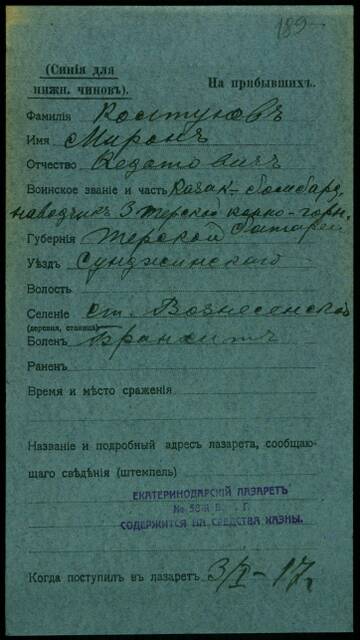 189
(Синія для
нижн. чиновъ).
На прибывшихъ.
Фамилія Костуковъ
Имя Миронъ
Отчество Федотовичъ
Воинское званіе и часть Казак-бомбард.
наводчикъ 3 терской конно-горн.
батареи
Губернія Терской
Уѣздъ Сунджинскаго
Волость
Селеніе ст. Вознесенской
(деревня, станица)
Боленъ Бронхитъ
Раненъ
Время и мѣсто сраженія
Названіе и подробный адресъ лазарета, сообщаю-
щаго свѣдѣнія (штемпель)
ЕКАТЕРИНОДАРСКІЙ ЛАЗАРЕТЪ
№ 58 В. Г.
СОДЕРЖИТСЯ НА СРЕДСТВА КАЗНЫ.
Когда поступилъ въ лазаретъ 3/I-17г.